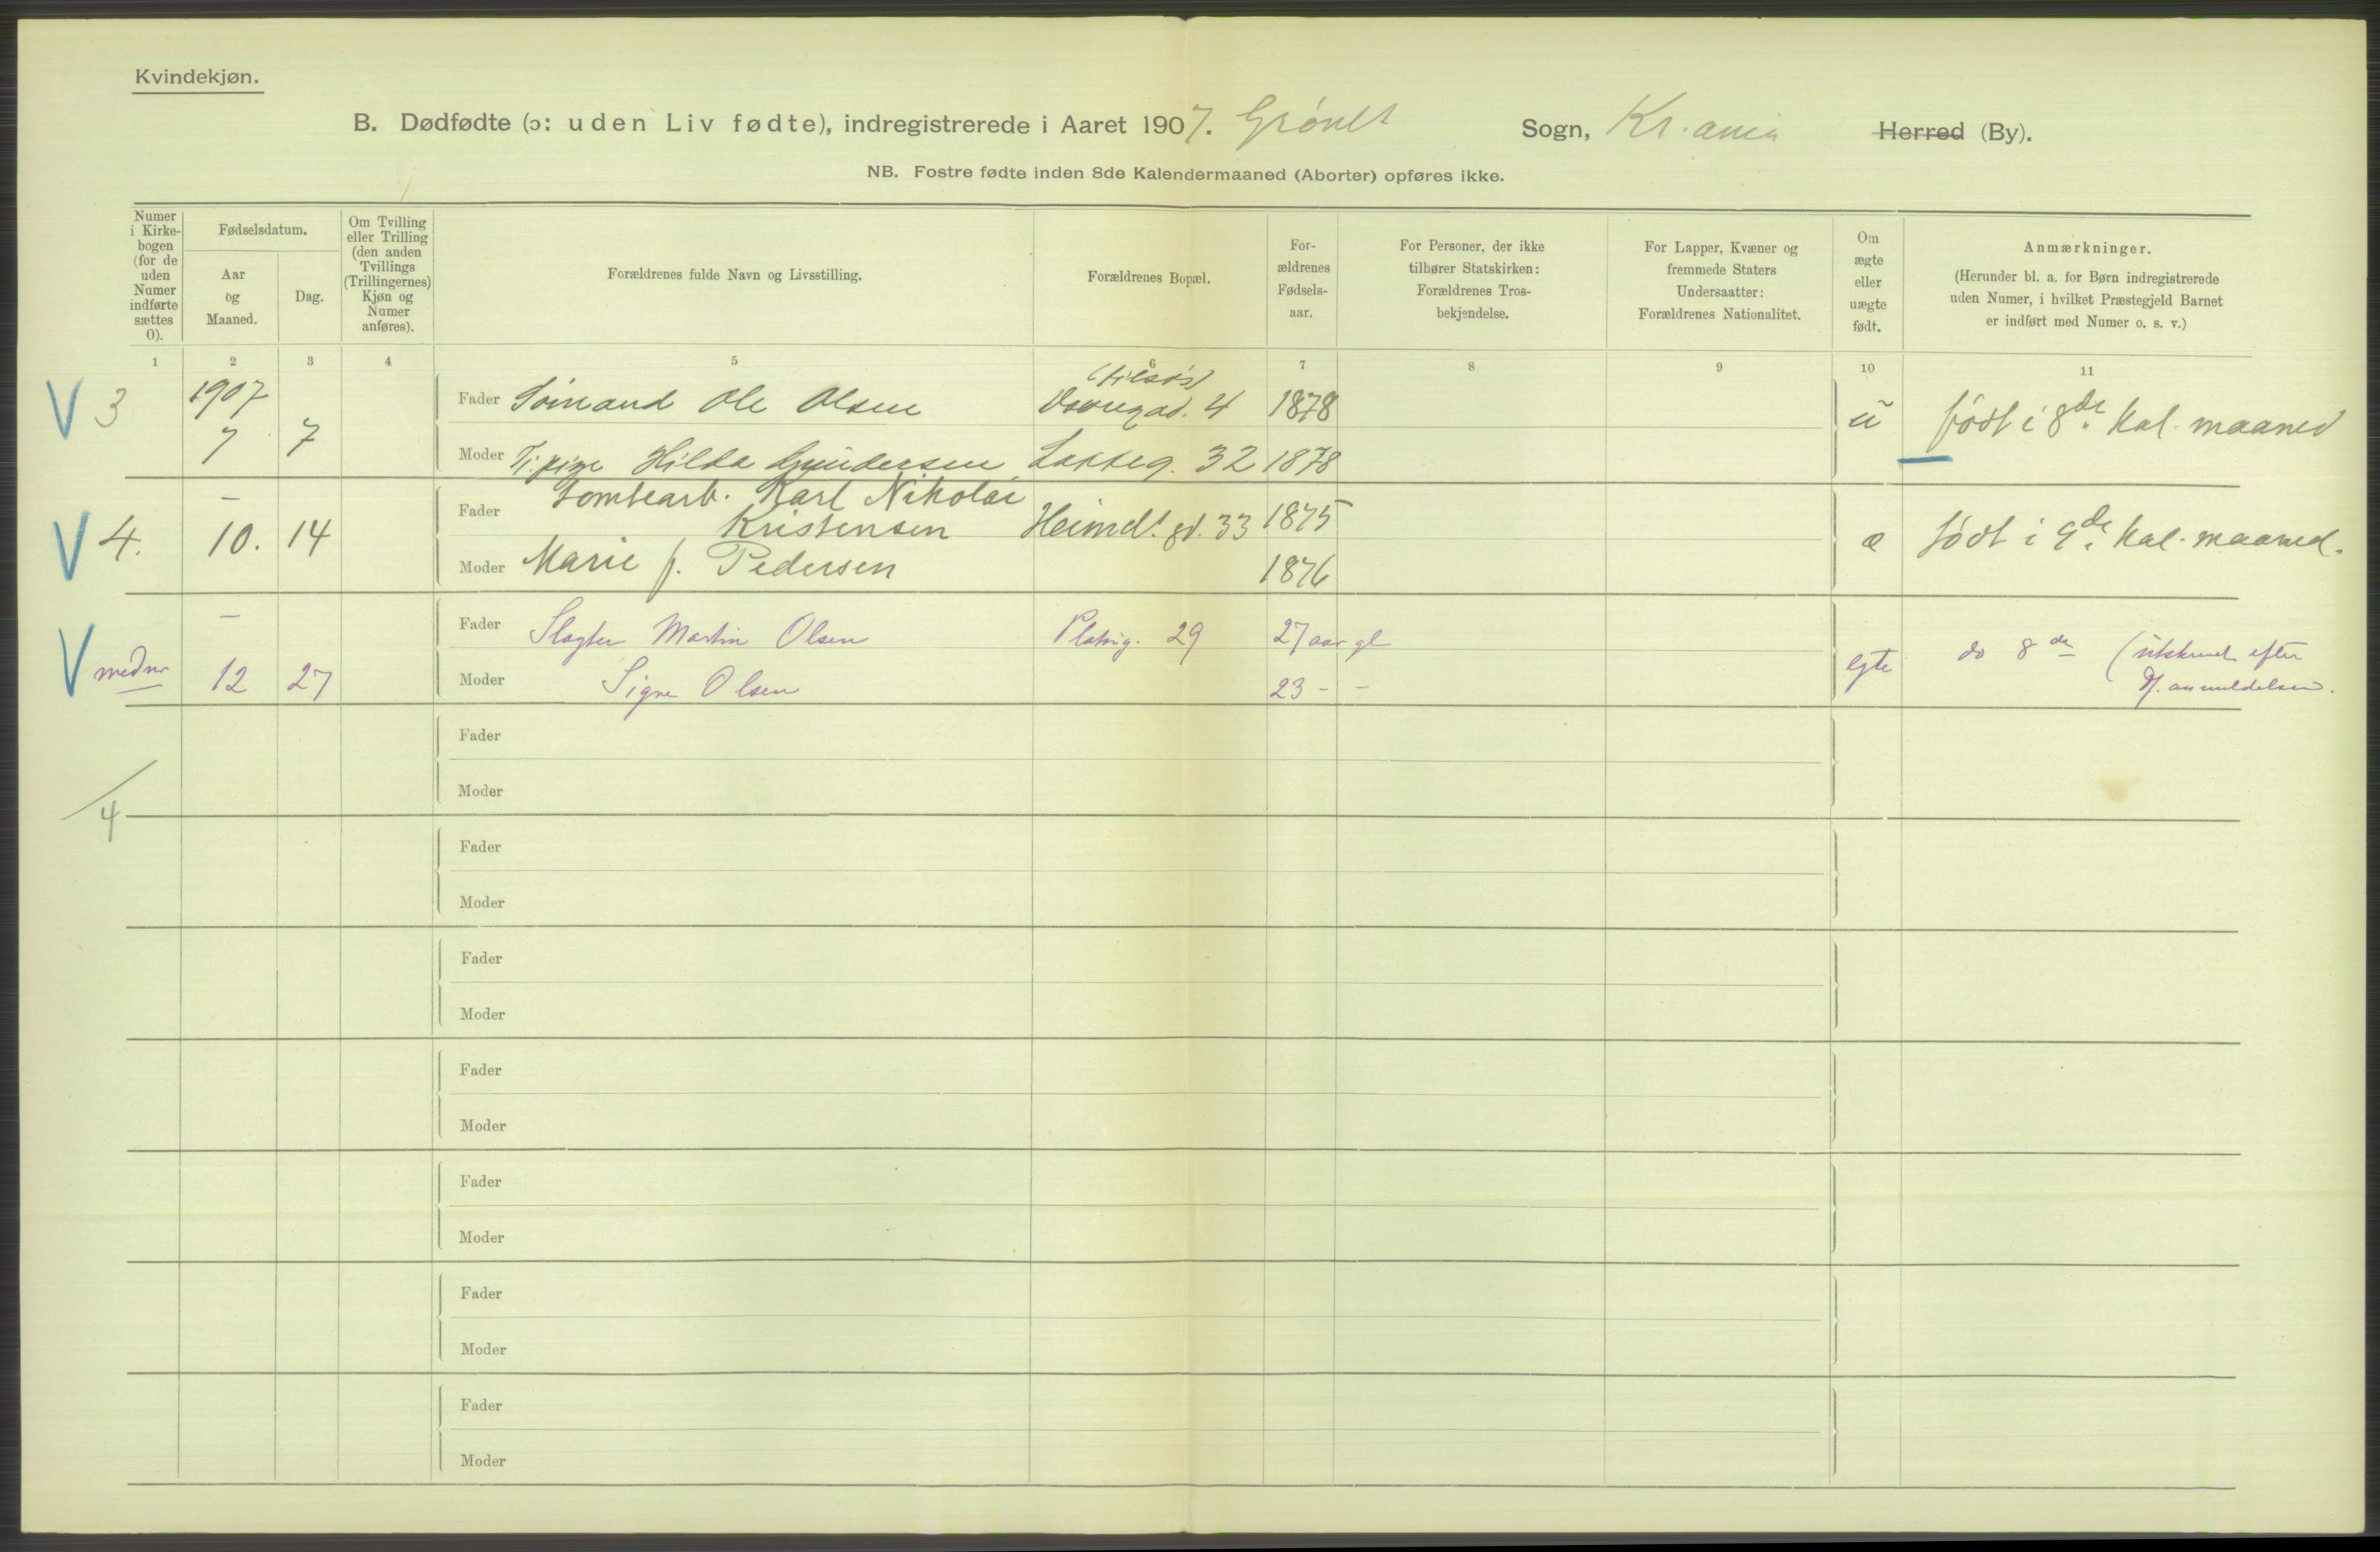 Kvindekjøn.
B. Dødfødte (ɔ: uden Liv fødte), indregistrerede i Aaret 1907. Grønl. Sogn, Kr.ania Herred (By).
NB. Fostre fødte inden 8de Kalendermaaned (Aborter) opføres ikke.
Numer i Kirke-bogen (for de uden Numer indførte sættes 0).
Fødselsdatum.
Aar og Maaned.
Dag.
Om Tvilling eller Trilling (den anden Tvillings (Trillingernes) Kjøn og Numer anføres).
Forældrenes fulde Navn og Livsstilling.
Forældrenes Bopæl.
For-ældrenes Fødsels-aar.
For Personer, der ikke tilhører Statskirken: Forældrenes Tros-bekjendelse.
For Lapper, Kvæner og fremmede Staters Undersaatter: Forældrenes Nationalitet.
Om ægte eller uægte født.
Anmærkninger.
(Herunder bl. a. for Børn indregistrerede uden Numer, i hvilket Præstegjeld Barnet er indført med Numer o. s. v.)
1 2 3 4 5 6 7 8 9 10 11
V 3 1907 7 7
Fader Sømand Ole Olsen (tilsøs) 4 1878
Moder Tj. pige Hilda Gundersen Lakkeg. 32 1878
u født i 8de Kal. maaned
V 4. — 10. 14
Fader Tomtearb. Karl Nikolai
Kristensen Heimd. gd. 33 1875
Moder Marie f. Pedersen 1876
æ født i 9de Kal. maaned.
V — 12 27
Fader Slagter Martin Olsen Platong. 29 27 aar gl
Moder Signe Olsen 23 - -
egte do 8de (utskrevet efter
anmeldelsen.
Fader
Moder
4
Fader
Moder
Fader
Moder
Fader
Moder
Fader
Moder
Fader
Moder
Fader
Moder